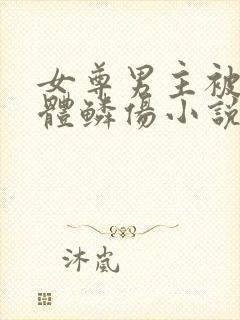 女尊男主被
體鱗傷小說
沐嵐